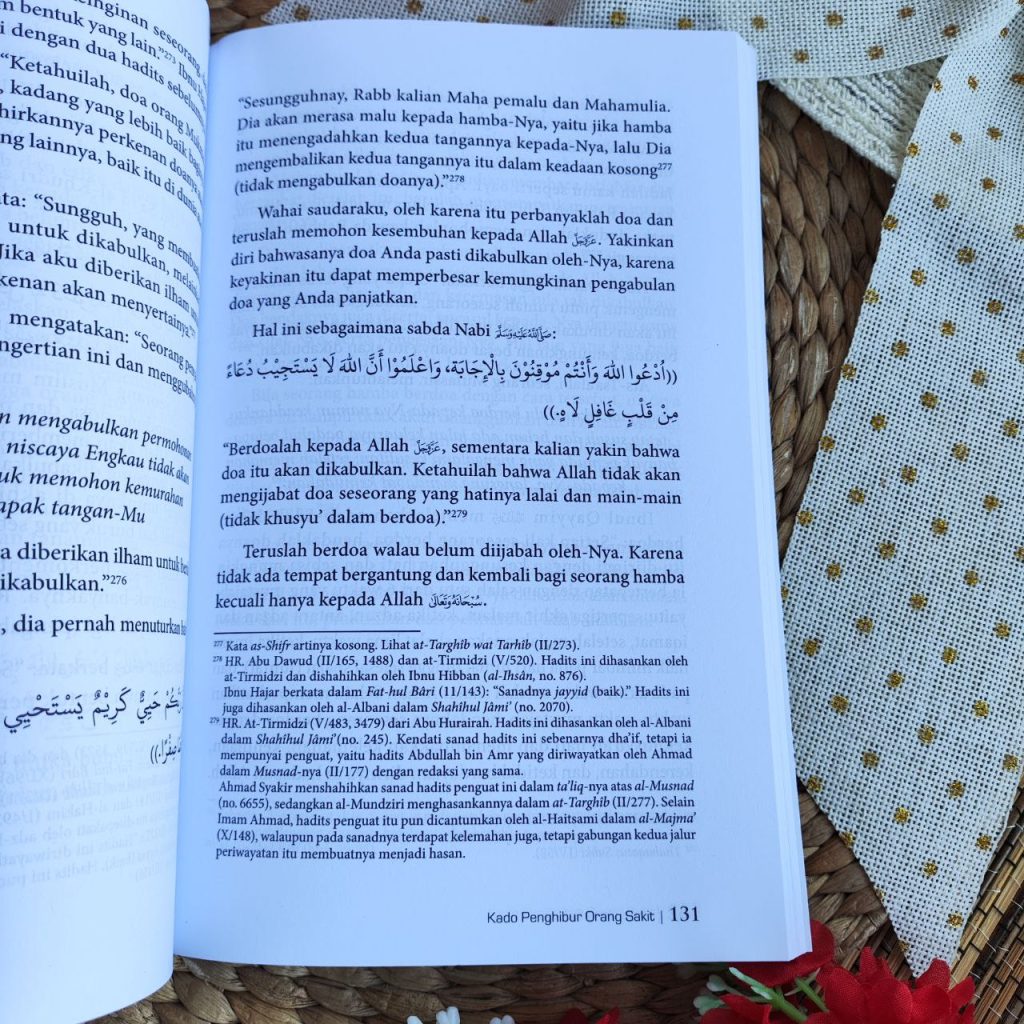 inginan seseorang
m bentuk yang lain."273 Ibnu
i dengan dua hadits sebelum
"Ketahuilah, doa orang
, kadang yang lebih baik bag
hirkannya perkenan doanya
ng lainnya, baik itu di dunia
ata: "Sungguh, yang
untuk dikabulkan,
Jika aku diberikan ilham
kenan akan menyertainya."
mengatakan: "Seorang
ngertian ini dan
n mengabulkan permohonan
niscaya Engkau tidak akan
uk memohon kemurahan
apak tangan-Mu
a diberikan ilham untuk
ikabulkan."276
, dia pernah menuturkan
حَيِيٌّ كَرِيْمٌ يَسْتَحْيِي
صِفْرًا.))
"Sesungguhnay, Rabb kalian Maha pemalu dan Mahamulia.
Dia akan merasa malu kepada hamba-Nya, yaitu jika hamba
itu menengadahkan kedua tangannya kepada-Nya, lalu Dia
mengembalikan kedua tangannya itu dalam keadaan kosong277
(tidak mengabulkan doanya)."278
Wahai saudaraku, oleh karena itu perbanyaklah doa dan
teruslah memohon kesembuhan kepada Allah عَزَّوَجَلَّ. Yakinkan
diri bahwasanya doa Anda pasti dikabulkan oleh-Nya, karena
keyakinan itu dapat memperbesar kemungkinan pengabulan
doa yang Anda panjatkan.
Hal ini sebagaimana sabda Nabi صَلَّى اللَّهُ عَلَيْهِ وَسَلَّمَ:
((اُدْعُوا اللهَ وَأَنْتُمْ مُوْقِنُوْنَ بِالْإِجَابَةِ، وَاعْلَمُوْا أَنَّ اللهَ لَا يَسْتَجِيْبُ دُعَاءً
مِنْ قَلْبٍ غَافِلٍ لَاهٍ.))
"Berdoalah kepada Allah عَزَّوَجَلَّ, sementara kalian yakin bahwa
doa itu akan dikabulkan. Ketahuilah bahwa Allah tidak akan
mengijabat doa seseorang yang hatinya lalai dan main-main
(tidak khusyu' dalam berdoa)."279
Teruslah berdoa walau belum diijabah oleh-Nya. Karena
tidak ada tempat bergantung dan kembali bagi seorang hamba
kecuali hanya kepada Allah سُبْحَانَهُ وَتَعَالَى.
277 Kata as-Shifr artinya kosong. Lihat at-Targhîb wat Tarhîb (II/273).
278 HR. Abu Dawud (II/165, 1488) dan at-Tirmidzi (V/520). Hadits ini dihasankan oleh
at-Tirmidzi dan dishahihkan oleh Ibnu Hibban (al-Ihsân, no. 876).
Ibnu Hajar berkata dalam Fat-hul Bâri (11/143): "Sanadnya jayyid (baik)." Hadits ini
juga dihasankan oleh al-Albani dalam Shahîhul Jâmi' (no. 2070).
279 HR. At-Tirmidzi (V/483, 3479) dari Abu Hurairah. Hadits ini dihasankan oleh al-Albani
dalam Shahîhul Jâmi' (no. 245). Kendati sanad hadits ini sebenarnya dha'if, tetapi ia
mempunyai penguat, yaitu hadits Abdullah bin Amr yang diriwayatkan oleh Ahmad
dalam Musnad-nya (II/177) dengan redaksi yang sama.
Ahmad Syakir menshahihkan sanad hadits penguat ini dalam ta'liq-nya atas al-Musnad
(no. 6655), sedangkan al-Mundziri menghasankannya dalam at-Targhîb (II/277). Selain
Imam Ahmad, hadits penguat itu pun dicantumkan oleh al-Haitsami dalam al-Majma'
(X/148), walaupun pada sanadnya terdapat kelemahan juga, tetapi gabungan kedua jalur
periwayatan itu membuatnya menjadi hasan.
Kado Penghibur Orang Sakit | 131